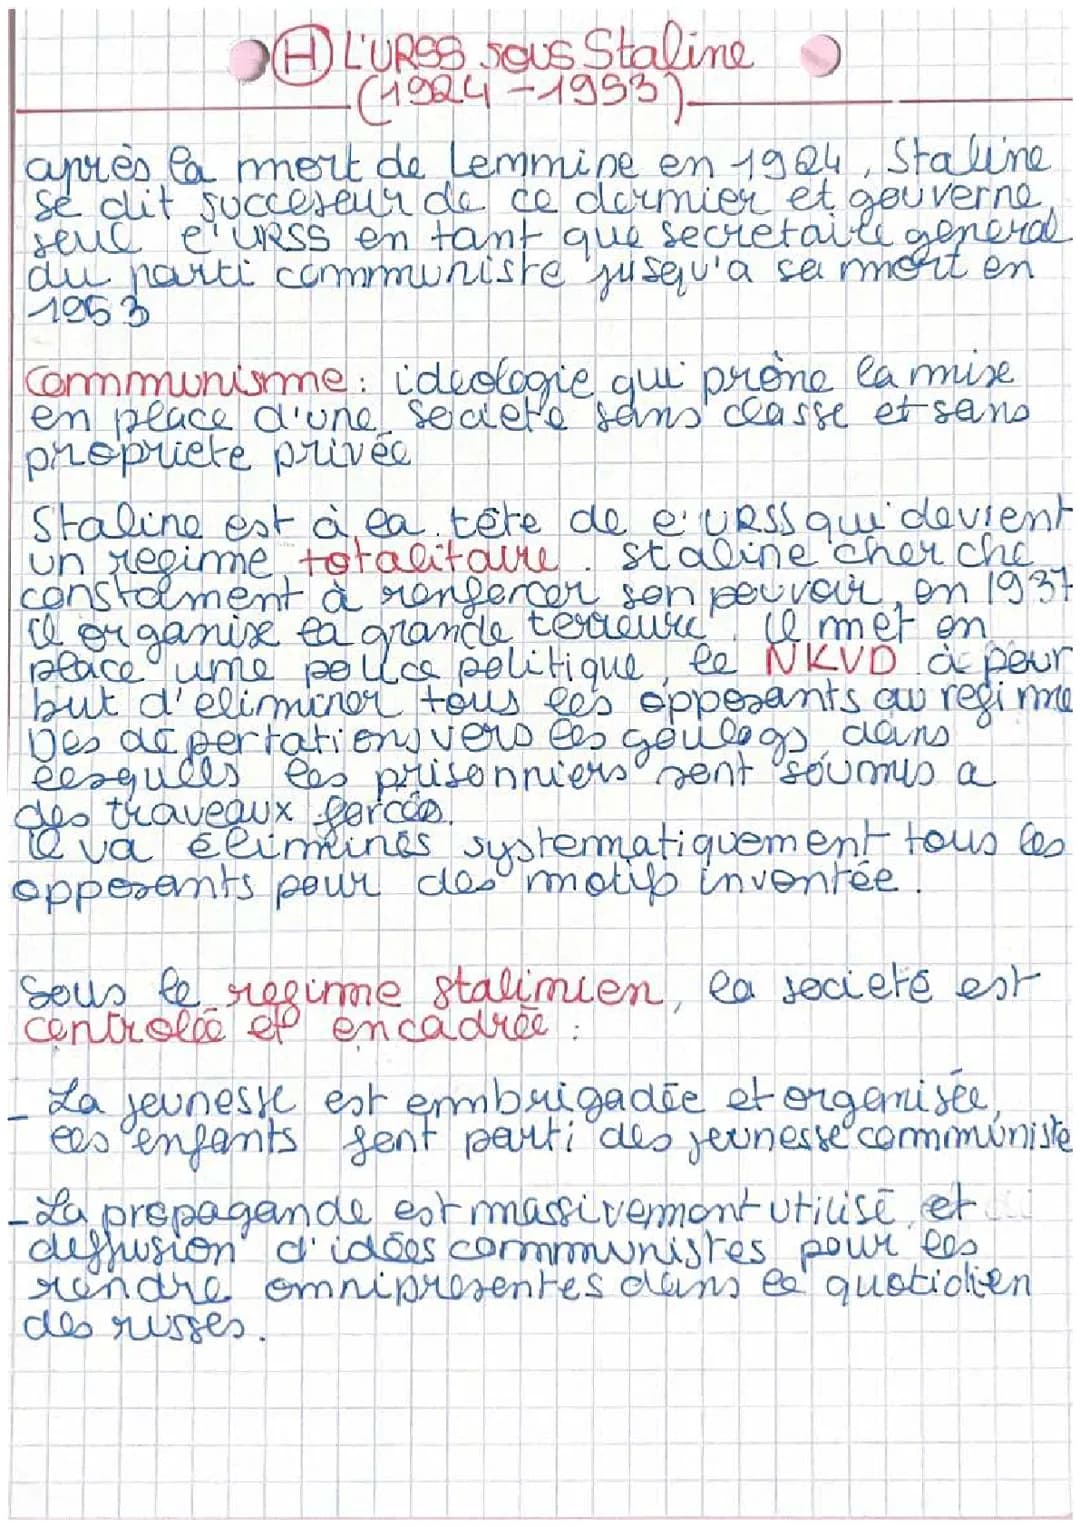 (H) L'URSS sous Staline
(1924-1953)
après la mort de Lemmine en 1924, Staline
se dit succeseur de ce dernier et gouverne
seul l'URSS en tant que secretaire general
du parti communiste jusqu'a sa mort en
1953
Communisme : ideologie qui prône la mise
en place d'une societe sans classe et sans
propriete privée
Staline est à la tête de l'URSS qui devient
un regime totalitaire. staline cherche
constament à renforcer son pouvoir, en 1937
il organise la grande terreure. Il met en
place une police politique, le NKVD à pour
but d'eliminer tous les opposants au regime
Des deportations vers les goulogs dans
lesquels les prisonniers sont soumis a
des traveaux forcés.
Il va éliminés systematiquement tous les
opposants pour des motifs inventée.
Sous le regime stalinien, la societé est
controlée et encadrée :
- La jeunesse est embrigadée et organisée,
les enfants font parti des jeunesse communiste
- La propagande est massivement utilisé et
deffusion d'idées communistes pour les
rendre omnipresentes dans le quotidien
des russes.